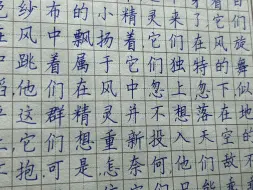 色纱布的小精灵来了它们
在风中飘扬着,它们在风旋
中跳着属于它们独特的舞
蹈他们在风中忽上忽下似
乎这群精灵并不想落在地
上,它们想重新投入天空的
怀抱.可是,怎奈何,他们敌不